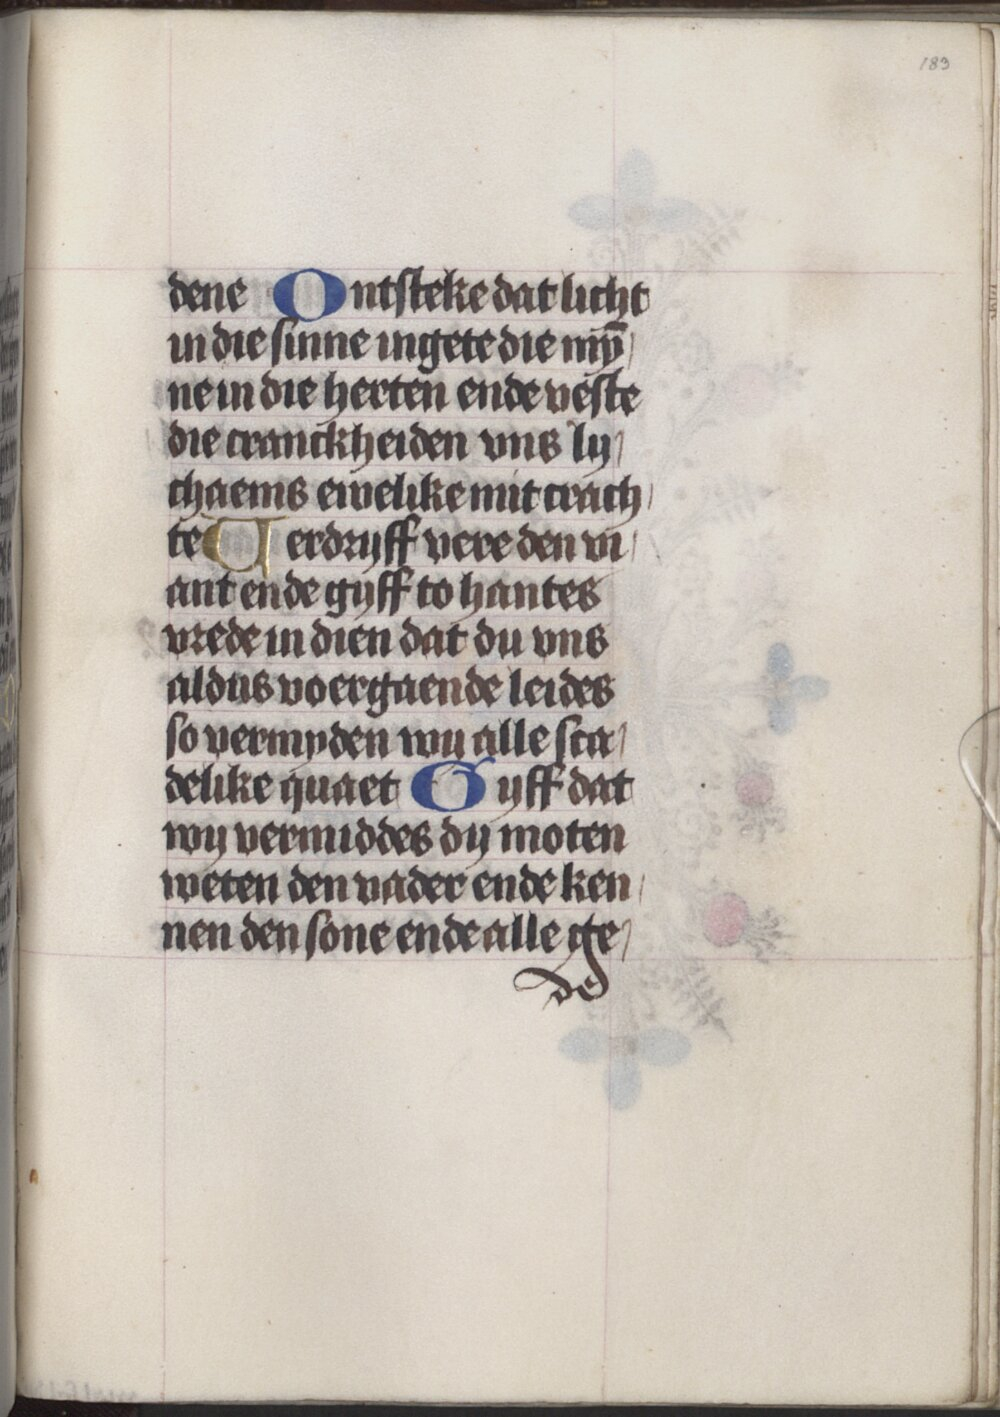 183
dene Ontsteke dat licht
in die sinne ingete die mȳ
ne in die herten ende veste
die cranckheiden vns ly
chaems ewelike mit crach
te Verdryff vere den vi
ant ende gyff to hantes
vrede in dien dat du vns
aldus voergaende leides
so vermyden wy alle sca
delike quaet Gyff dat
wy vermiddes dy moten
weten den vader ende ken
nen den sone ende alle ge
de